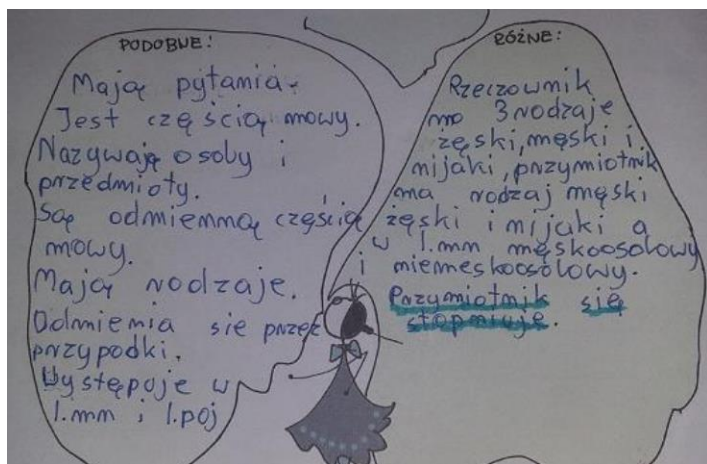 PODOBNE:
Mają pytania.
Jest częścią mowy.
Nazywają osoby i
przedmioty.
Są odmienną częścią
mowy.
Mają rodzaje.
Odmienia się przez
przypadki.
Występuje w
l.mn i l.poj
RÓŻNE:
Rzeczownik
ma 3 rodzaje
żęski, męski i
nijaki, przymiotnik
ma rodzaj męski
żęski i nijaki a
w l.mn męskoosolowy
i niemęskoosolowy.
Przymiotnik się
stopniuje.